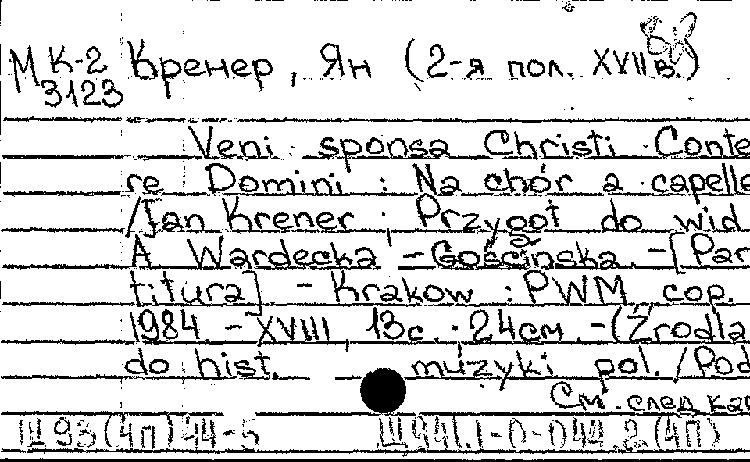 МК-2 Кренер, Ян (2-я пол. XVII в.)
3123
Veni sponsa Christi. Conte
re Domini : Na chór a capelle
/Jan Krener ; Przygot do wid.
A Wardecka - Gościńska. - [Par
titura] - Krakow : PWM, cop.
1984. - XVIII, 13с. . 24см. - (Źrodla
do hist. muzyki pol. / Pod
См. след. кар
Щ93(4П)44-5 Щ941.1-0-044.2(4П)